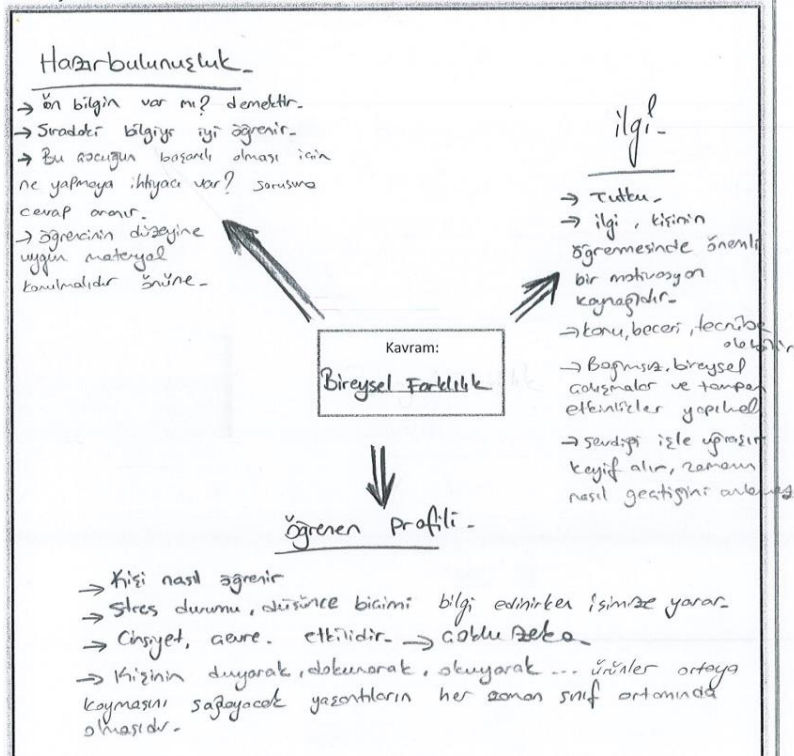 Hazırbulunuşluk-
→ ön bilgin var mı? demektir-
→ Sıradaki bilgiyi iyi öğrenir-
→ Bu çocuğun başarılı olması için
ne yapmaya ihtiyacı var? sorusuna
cevap aranır-
→ öğrencinin düzeyine
uygun materyal
konulmalıdır önüne-
ilgi-
→ Tutku-
→ ilgi, kişinin
öğrenmesinde önemli
bir motivasyon
kaynağıdır-
→ konu, beceri, tecrübe
olabilir
→ Bağımsız, bireysel
çalışmalar ve tampon
etkinlikler yapılmalı
→ sevdiği işle uğraşır
keyif alır, zamanın
nasıl geçtiğini anlamaz
Kavram:
Bireysel Farklılık
Öğrenen profili-
→ Kişi nasıl öğrenir
→ Stres durumu, düşünce biçimi bilgi edinirken işimize yarar-
→ Cinsiyet, çevre- etkilidir- → Çoklu zeka-
→ Kişinin duyarak, dokunarak, okuyarak ... ürünler ortaya
koymasını sağlayacak yaşantıların her zaman sınıf ortamında
olmasıdır-